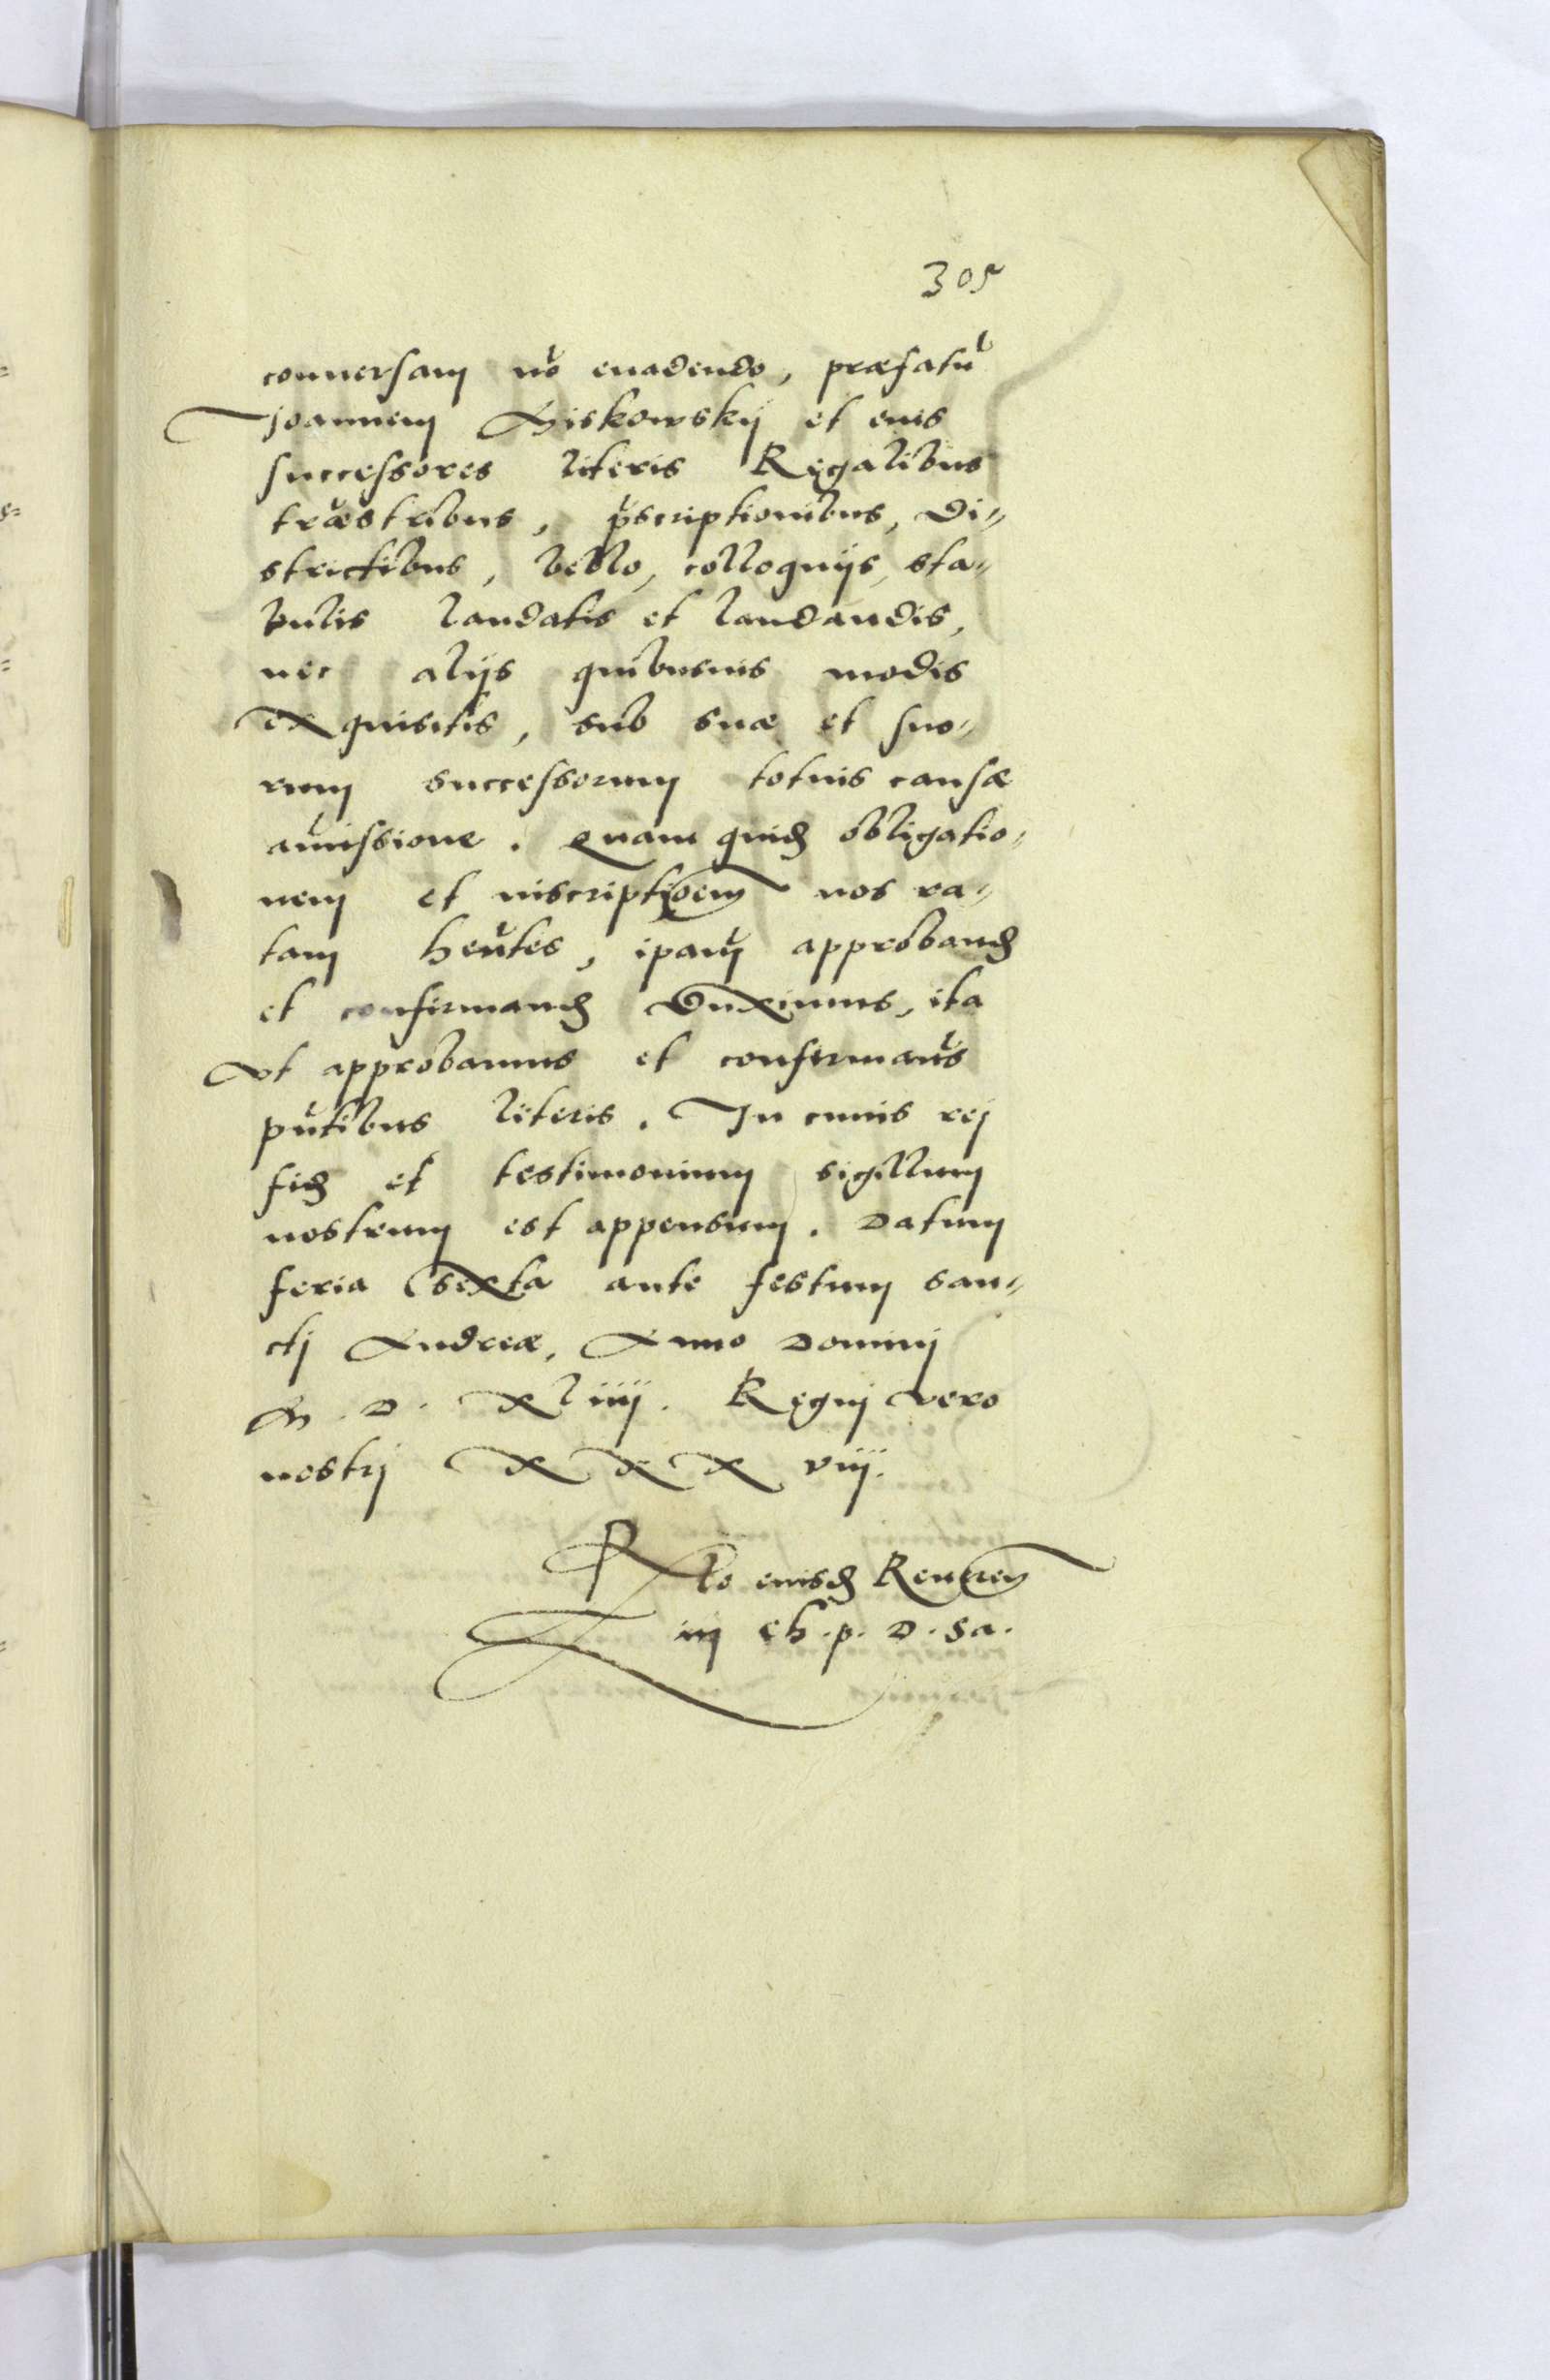 305
conuersam nõ euadendo, præfatũ
Joannem Miskowskij et eius
successores literis Regalibus
træstribus, p̃scriptionibus, di=
strictibus, bello, colloquijs, sta=
bulis laudatis et laudandis,
nec alijs quibusuis modis
exquisitis, sub suæ et suo=
rum successorum totius causæ
amissione. Quam quid obligatio=
nem et inscriptioem nos ra=
tam hẽntes, ipam̃ approband
et confirmand duximus, ita
vt approbamus et confirmam̃s
pñtibus literis. In cuius rej
fid et testimonium sigillum
nostrum est appensum. Datum
feria sexta ante festum san=
ctj Andreæ, Anno Dominj
M. D. xliiij. Regnj vero
nostrj xxxviij.
Rto eiusd Reuren